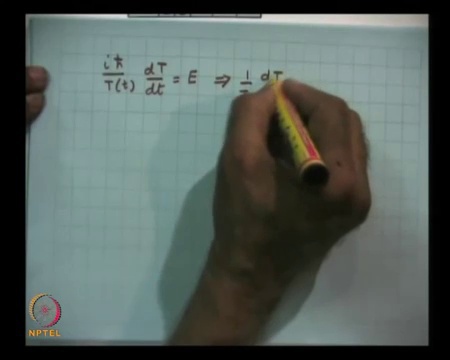 iħ/T(t) dT/dt = E ⇒ 1/T dT
NPTEL